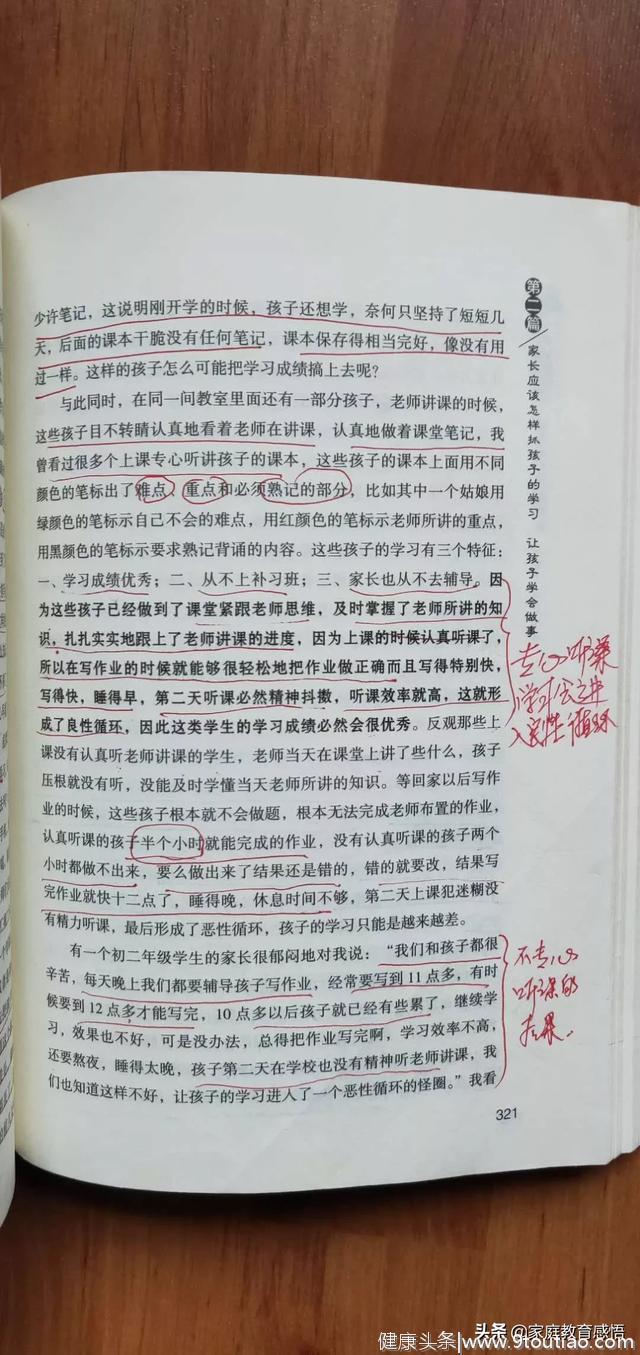 少许笔记，这说明刚开学的时候，孩子还想学，奈何只坚持了短短几
天，后面的课本干脆没有任何笔记，课本保存得相当完好，像没有用
过一样。这样的孩子怎么可能把学习成绩搞上去呢？
与此同时，在同一间教室里面还有一部分孩子，老师讲课的时候，
这些孩子目不转睛认真地看着老师在讲课，认真地做着课堂笔记，我
曾看过很多个上课专心听讲孩子的课本，这些孩子的课本上面用不同
颜色的笔标出了难点、重点和必须熟记的部分，比如其中一个姑娘用
绿颜色的笔标示自己不会的难点，用红颜色的笔标示老师所讲的重点，
用黑颜色的笔标示要求熟记背诵的内容。这些孩子的学习有三个特征：
一、学习成绩优秀；二、从不上补习班；三、家长也从不去辅导。因
为这些孩子已经做到了课堂紧跟老师思维，及时掌握了老师所讲的知
识，扎扎实实地跟上了老师讲课的进度，因为上课的时候认真听课了，
所以在写作业的时候就能够很轻松地把作业做正确而且写得特别快，
写得快，睡得早，第二天听课必然精神抖擞，听课效率就高，这就形
成了良性循环，因此这类学生的学习成绩必然会很优秀。反观那些上
课没有认真听老师讲课的学生，老师当天在课堂上讲了些什么，孩子
压根就没有听，没能及时学懂当天老师所讲的知识。等回家以后写作
业的时候，这些孩子根本就不会做题，根本无法完成老师布置的作业，
认真听课的孩子半个小时就能完成的作业，没有认真听课的孩子两个
小时都做不出来，要么做出来了结果还是错的，错的就要改，结果写
完作业就快十二点了，睡得晚，休息时间不够，第二天上课犯迷糊没
有精力听课，最后形成了恶性循环，孩子的学习只能是越来越差。
有一个初二年级学生的家长很郁闷地对我说：“我们和孩子都很
辛苦，每天晚上我们都要辅导孩子写作业，经常要写到11点多，有时
候要到12点多才能写完，10点多以后孩子就已经有些累了，继续学
习，效果也不好，可是没办法，总得把作业写完啊，学习效率不高，
还要熬夜，睡得太晚，孩子第二天在学校也没有精神听老师讲课，我
们也知道这样不好，让孩子的学习进入了一个恶性循环的怪圈。”我看
321
第二篇
家长应该怎样抓孩子的学习 让孩子学会做事
专心听课
学习会进
入良性循环
不专心
听课的
后果.
头条@家庭教育感悟
健康头条|www.9toutiao.com